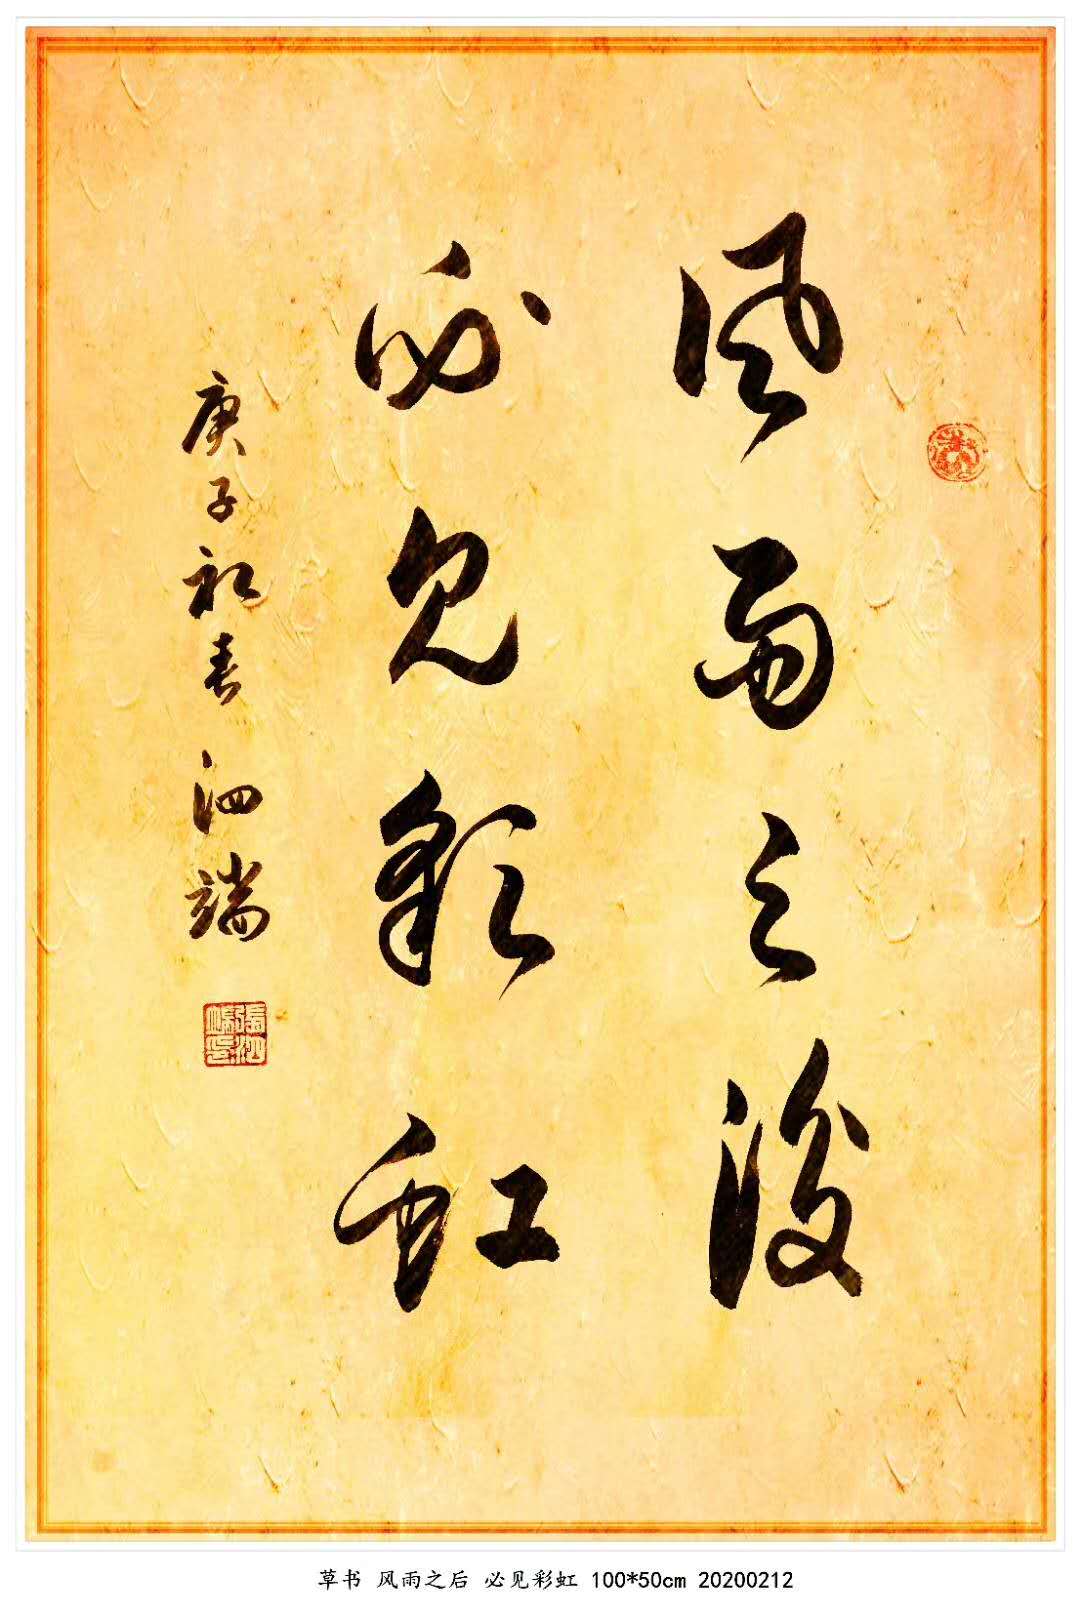 風雨之後
必見彩虹
庚子初春 泗端
張泗端印
草书 风雨之后 必见彩虹 100*50cm 20200212